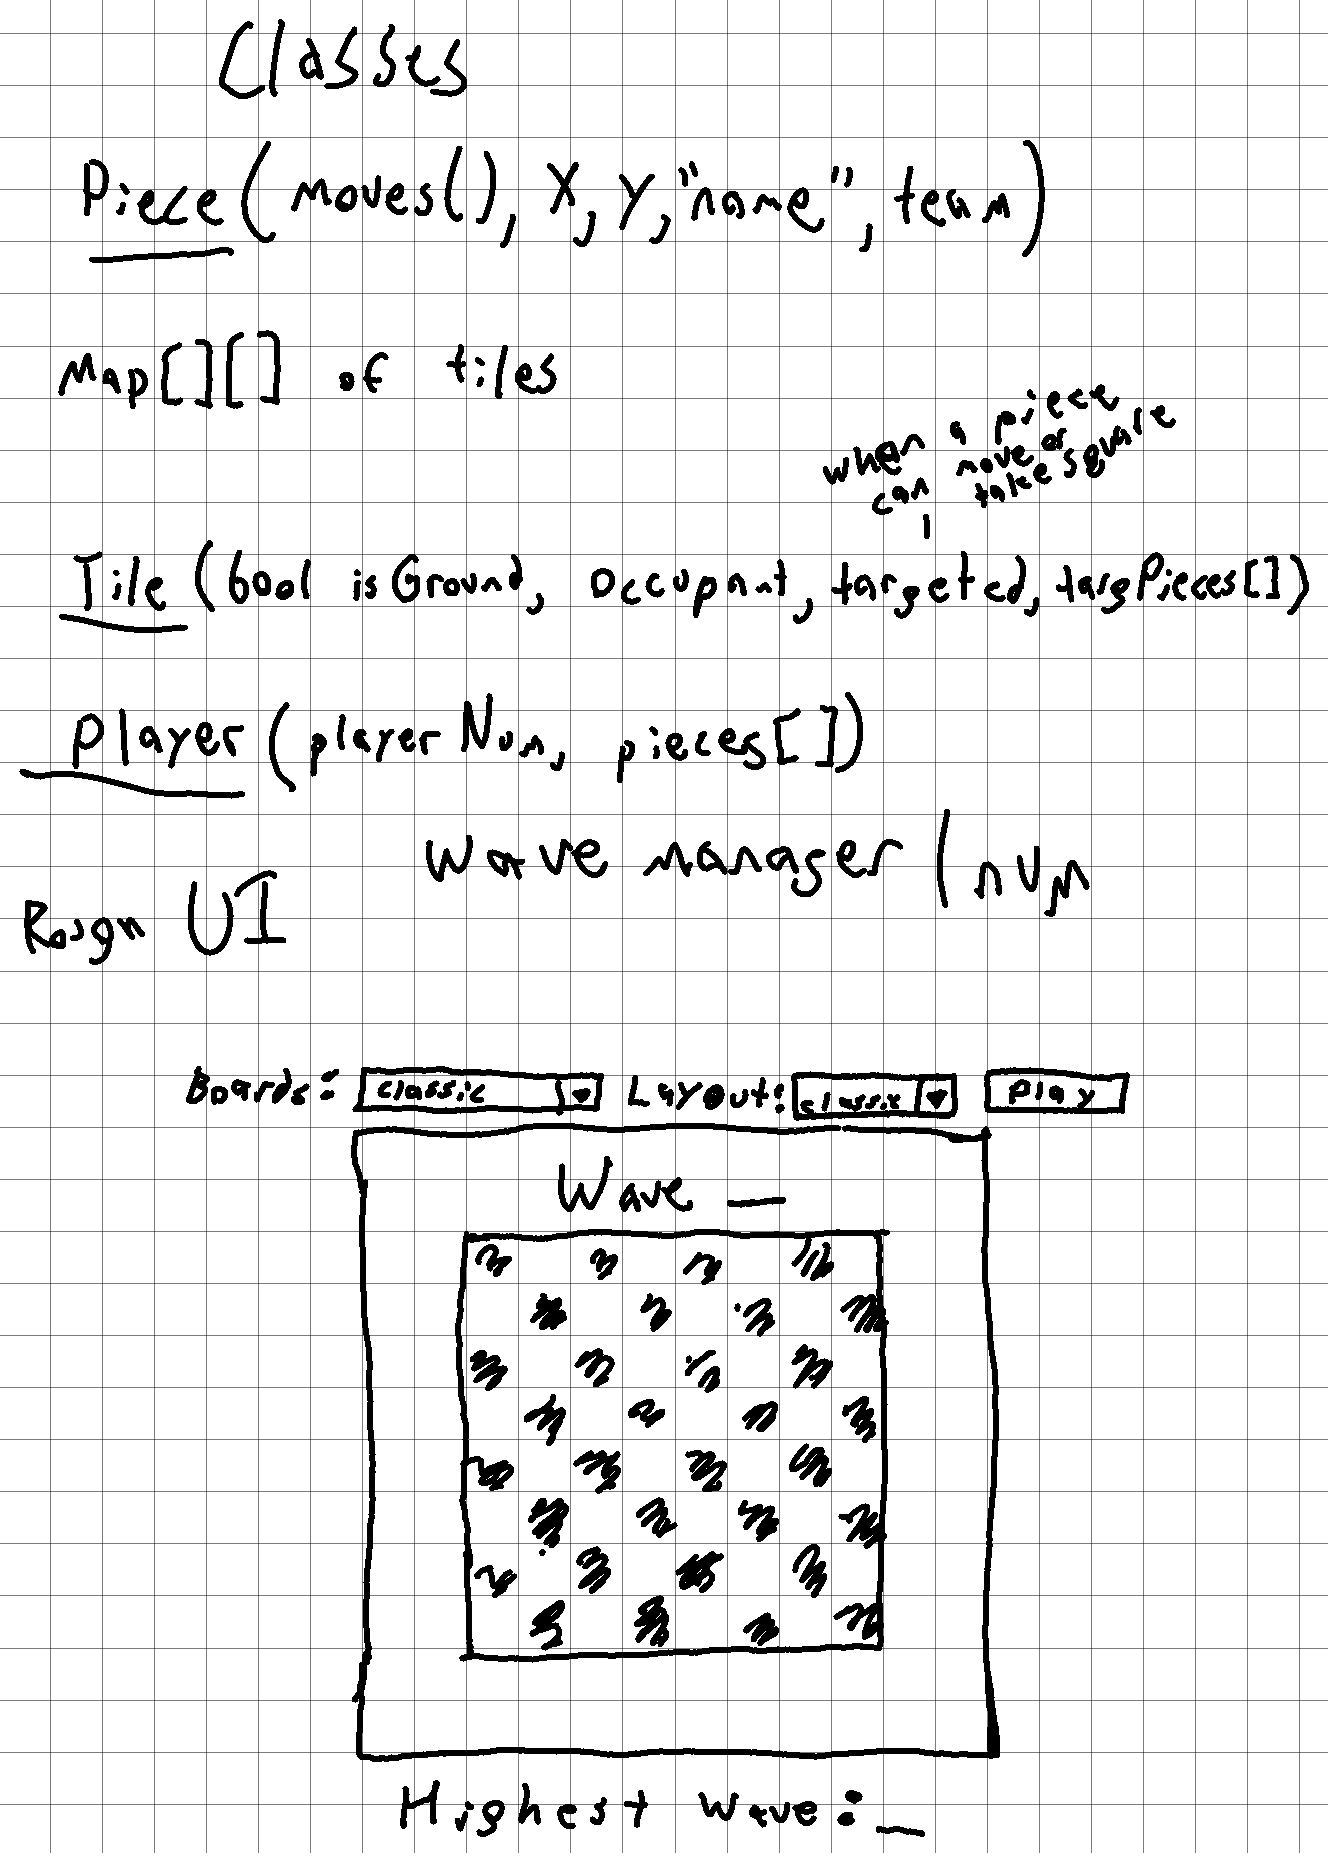 Classes
Piece(moves(), X, Y, "name", team)
Map[][] of tiles
when a piece
can move or
take square
Tile (bool isGround, Occupant, targeted, targPieces[])
Player (playerNum, pieces[])
Wave manager (num
UI
Boards: classic Layout: classic Play
Wave __
Highest wave: __